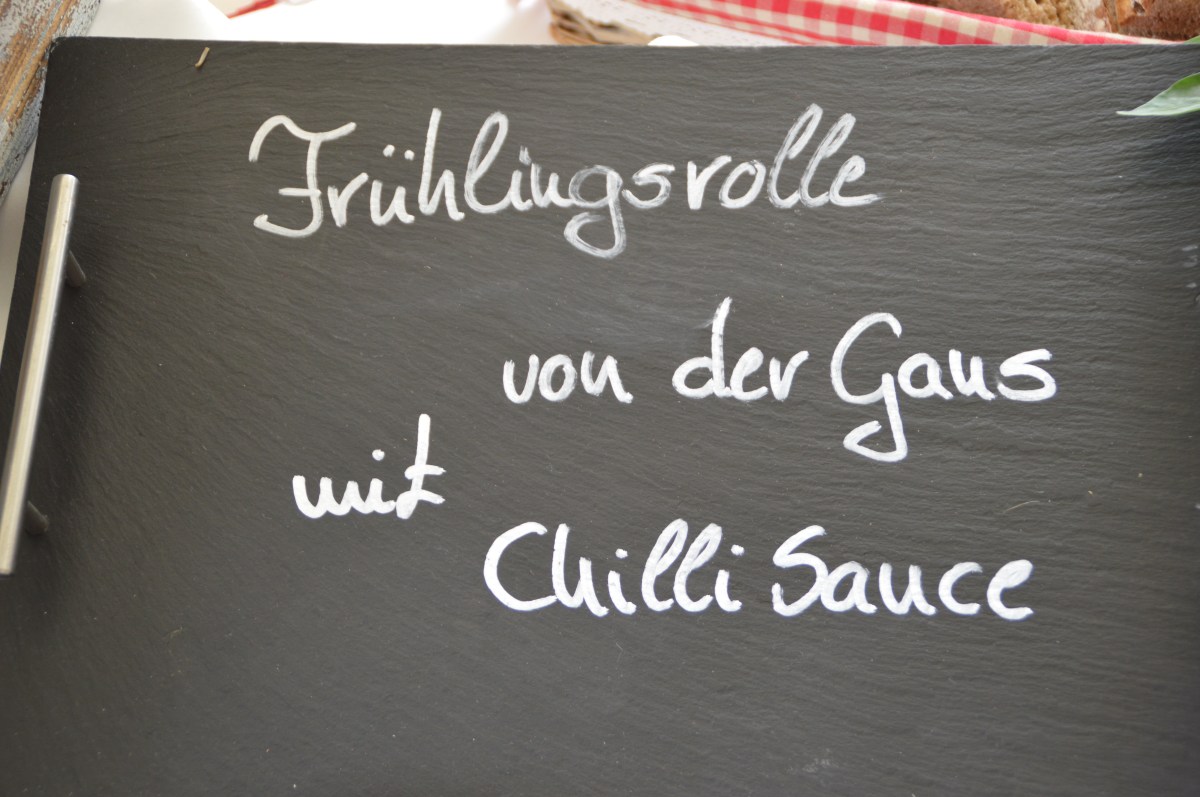 Frühlingsrolle
von der Gans
mit
Chilli Sauce